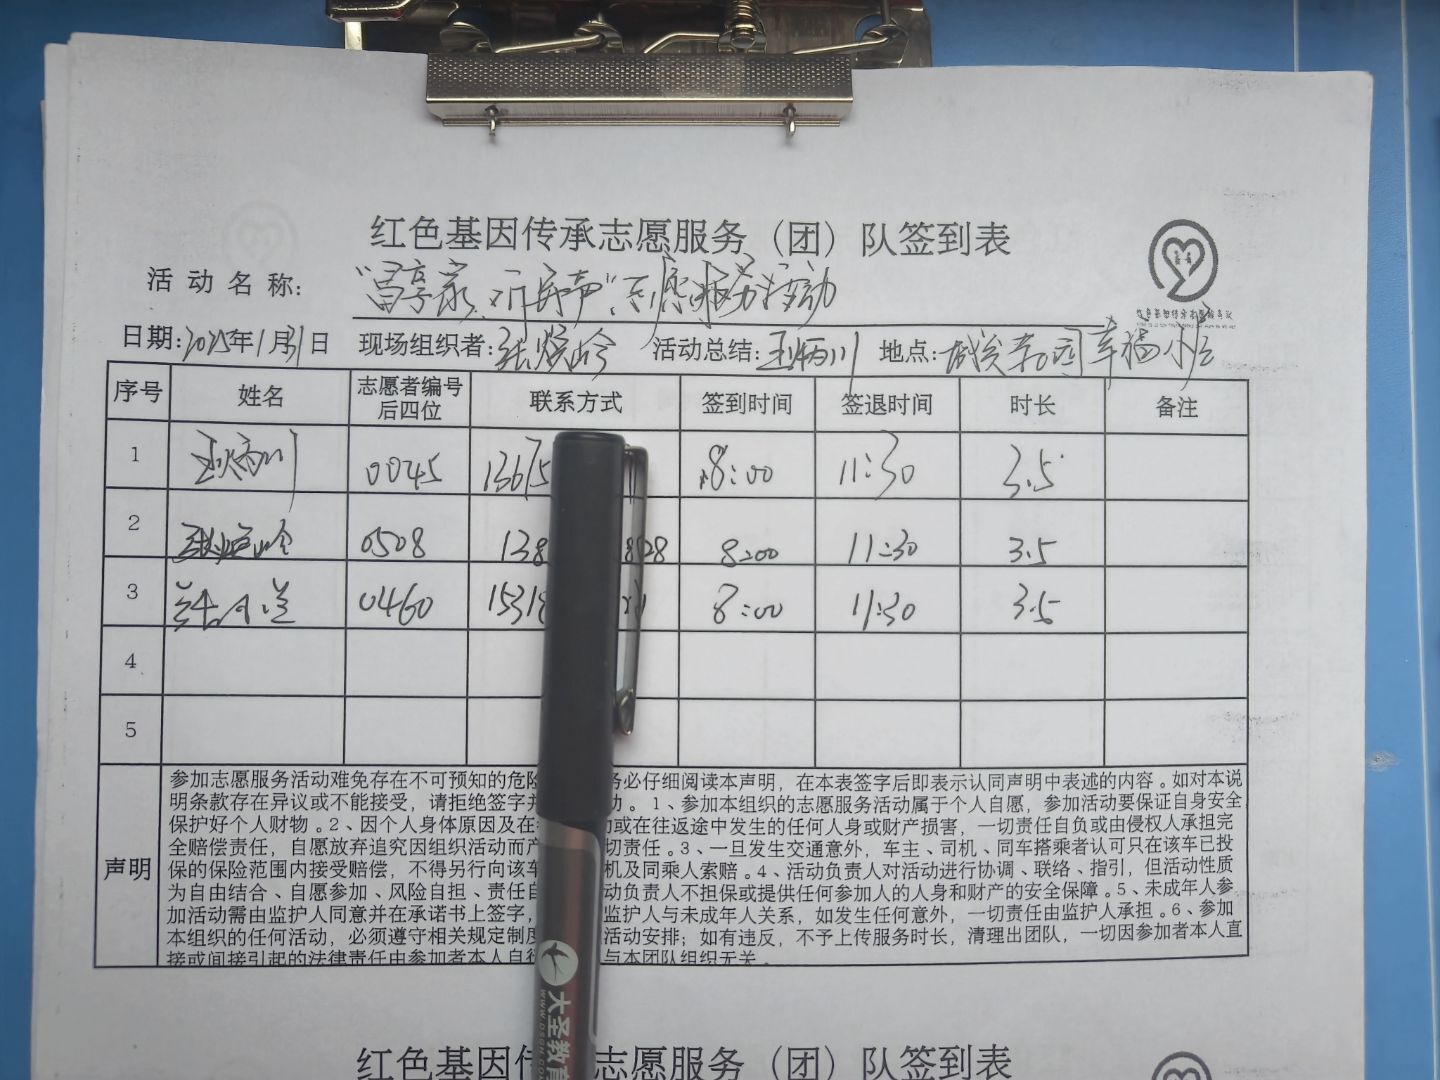 红色基因传承志愿服务（团）队签到表
活动名称: 志愿服务活动
日期:2025年1月31日 现场组织者: 活动总结:王炳川 地点: 幸福小区
序号 姓名 志愿者编号后四位 联系方式 签到时间 签退时间 时长 备注
1 王炳川 0045 13675 8:00 11:30 3.5
2 0508 138 8528 8:00 11:30 3.5
3 0460 15318 8:00 11:30 3.5
4
5
声明
参加志愿服务活动难免存在不可预知的危险 务必仔细阅读本声明，在本表签字后即表示认同声明中表述的内容。如对本说
明条款存在异议或不能接受，请拒绝签字 。1、参加本组织的志愿服务活动属于个人自愿，参加活动要保证自身安全
保护好个人财物。2、因个人身体原因及在 或在往返途中发生的任何人身或财产损害，一切责任自负或由侵权人承担完
全赔偿责任，自愿放弃追究因组织活动而产 切责任。3、一旦发生交通意外，车主、司机、同车搭乘者认可只在该车已投
保的保险范围内接受赔偿，不得另行向该车 机及同乘人索赔。4、活动负责人对活动进行协调、联络、指引，但活动性质
为自由结合、自愿参加、风险自担、责任自 动负责人不担保或提供任何参加人的人身和财产的安全保障。5、未成年人参
加活动需由监护人同意并在承诺书上签字， 监护人与未成年人关系，如发生任何意外，一切责任由监护人承担。6、参加
本组织的任何活动，必须遵守相关规定制度 活动安排；如有违反，不予上传服务时长，清理出团队，一切因参加者本人直
接或间接引起的法律责任由参加者本人自行 与本团队组织无关。
大圣教育
红色基因传 志愿服务（团）队签到表